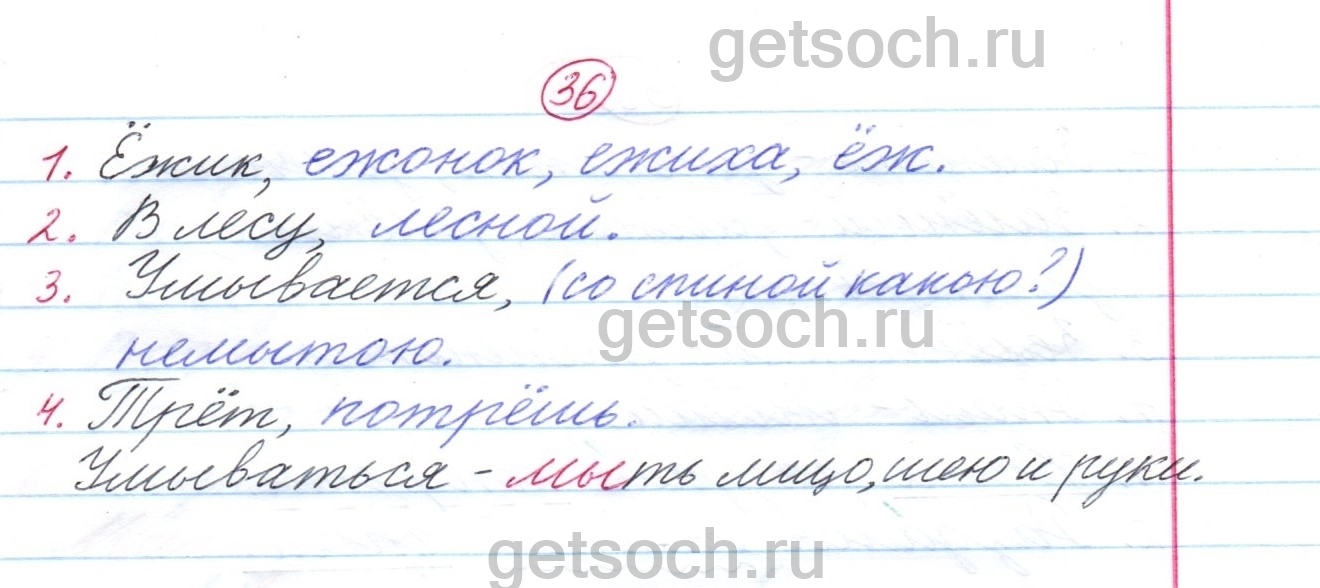 getsoch.ru
36
1. Ёжик, ежонок, ежиха, ёж.
2. В лесу, лесной.
3. Умывается, (со спиной какою?)
getsoch.ru
немытою.
4. Трёт, потрёшь.
Умываться - мыть лицо, шею и руки.
getsoch.ru